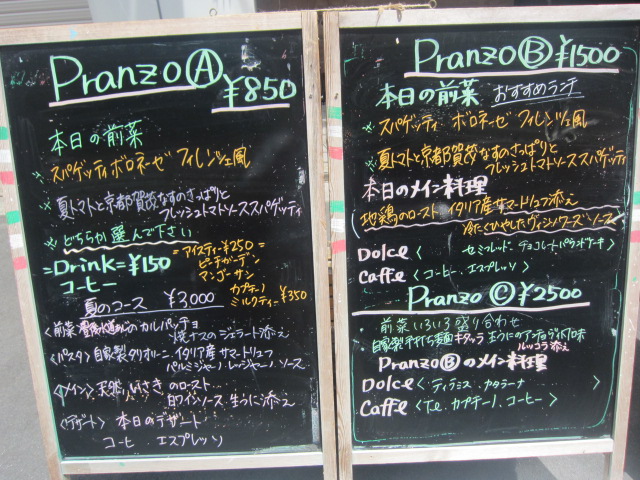 Pranzo Ⓐ
¥850
本日の前菜
※スパゲッティボロネーゼ フィレンツェ風
※夏トマトと京都賀茂なすのさっぱりと
フレッシュトマトソーススパゲッティ
※どちらか選んで下さい
=Drink= ¥150
コーヒー
=アイスティー¥250=
ピーチガーデン
マンゴーサン
カプチーノ
ミルクティー ¥350
夏のコース ¥3,000
<前菜> のカルパッチョ
焼ナスのジェラート添え
<パスタ>自家製タリオリーニ イタリア産サマートリュフ
パルミジャーノレッジャーノソース
<メイン>天然いさきのロースト
白ワインソース 生うに添え
<デザート> 本日のデザート
コーヒ エスプレッソ
Pranzo Ⓑ ¥1500
本日の前菜 おすすめランチ
※スパゲッティ ボロネーゼ フィレンツェ風
※夏トマトと京都賀茂なすのさっぱりと
フレッシュトマトソーススパゲッティ
本日のメイン料理
地鶏のロースト イタリア産サマートリュフ添え
冷たくひやしたヴィシソワーズソース
Dolce < セミフレッド・チョコレートパウンドケーキ>
Caffe <コーヒー・エスプレッソ>
Pranzo Ⓒ ¥2500
前菜いろいろ盛り合わせ
自家製手打ち麺キタッラ 生うにのアーリオオーリオ風味
ルッコラ添え
PranzoⒷのメイン料理
Dolce <ティラミス・カタラーナ >
Caffe <Te.カプチーノ.コーヒー>